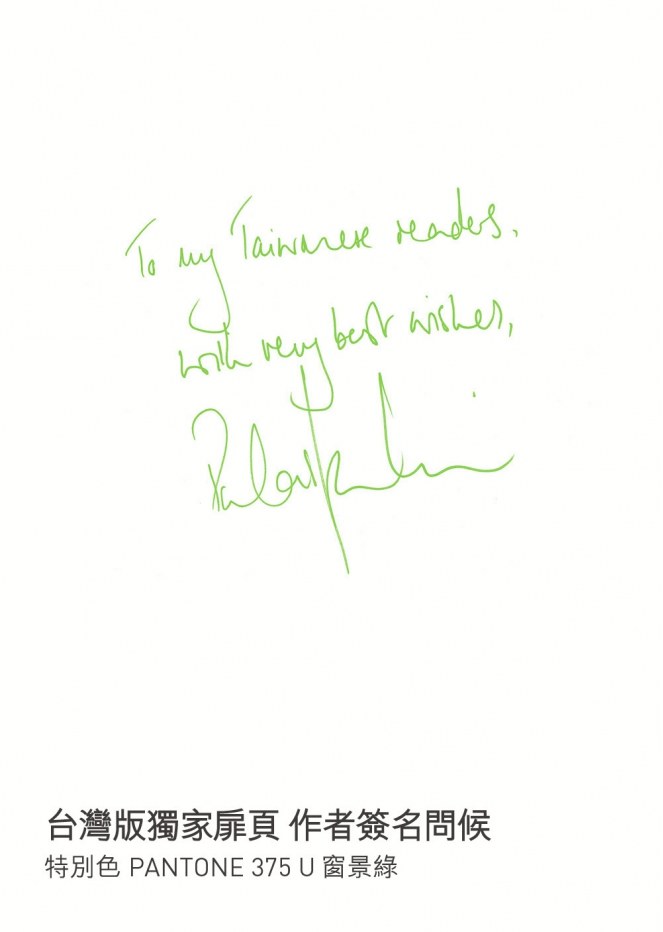 To my Taiwanese readers,
with very best wishes,
台灣版獨家扉頁 作者簽名問候
特別色 PANTONE 375 U 窗景綠